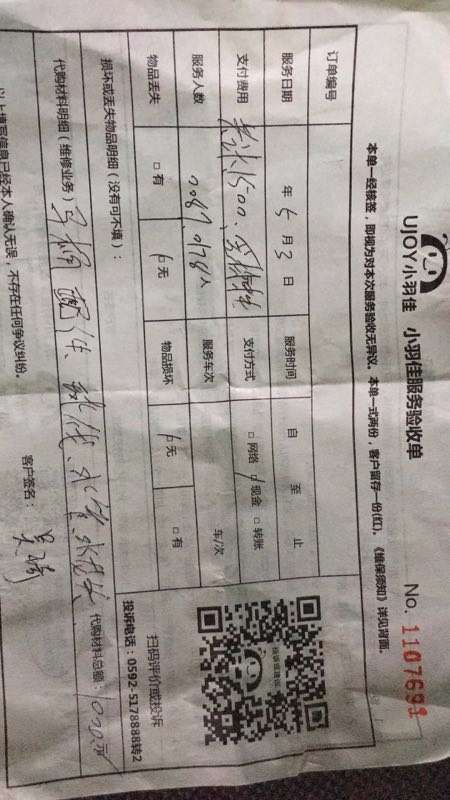 UJOY小羽佳 小羽佳服务验收单 No. 1107691
本单一经核签，即视为对本次服务验收无异议。本单一式两份，客户留存一份(红)。《维保须知》详见背面。
订单编号
服务日期 年 5 月 3 日 服务时间 自 至 止
支付费用 支付方式 □网络 □现金 □转账
服务人数 人 服务车次 车/次
物品丢失 □有 □无 物品损坏 □无 □有
扫码评价或投诉
投诉电话：0592-5178888转2
损坏或丢失物品明细（没有可不填）：
代购材料明细（维修业务） 代购材料总额：1000元
以上填写信息已经本人确认无误，不存在任何争议纠纷。 客户签名：